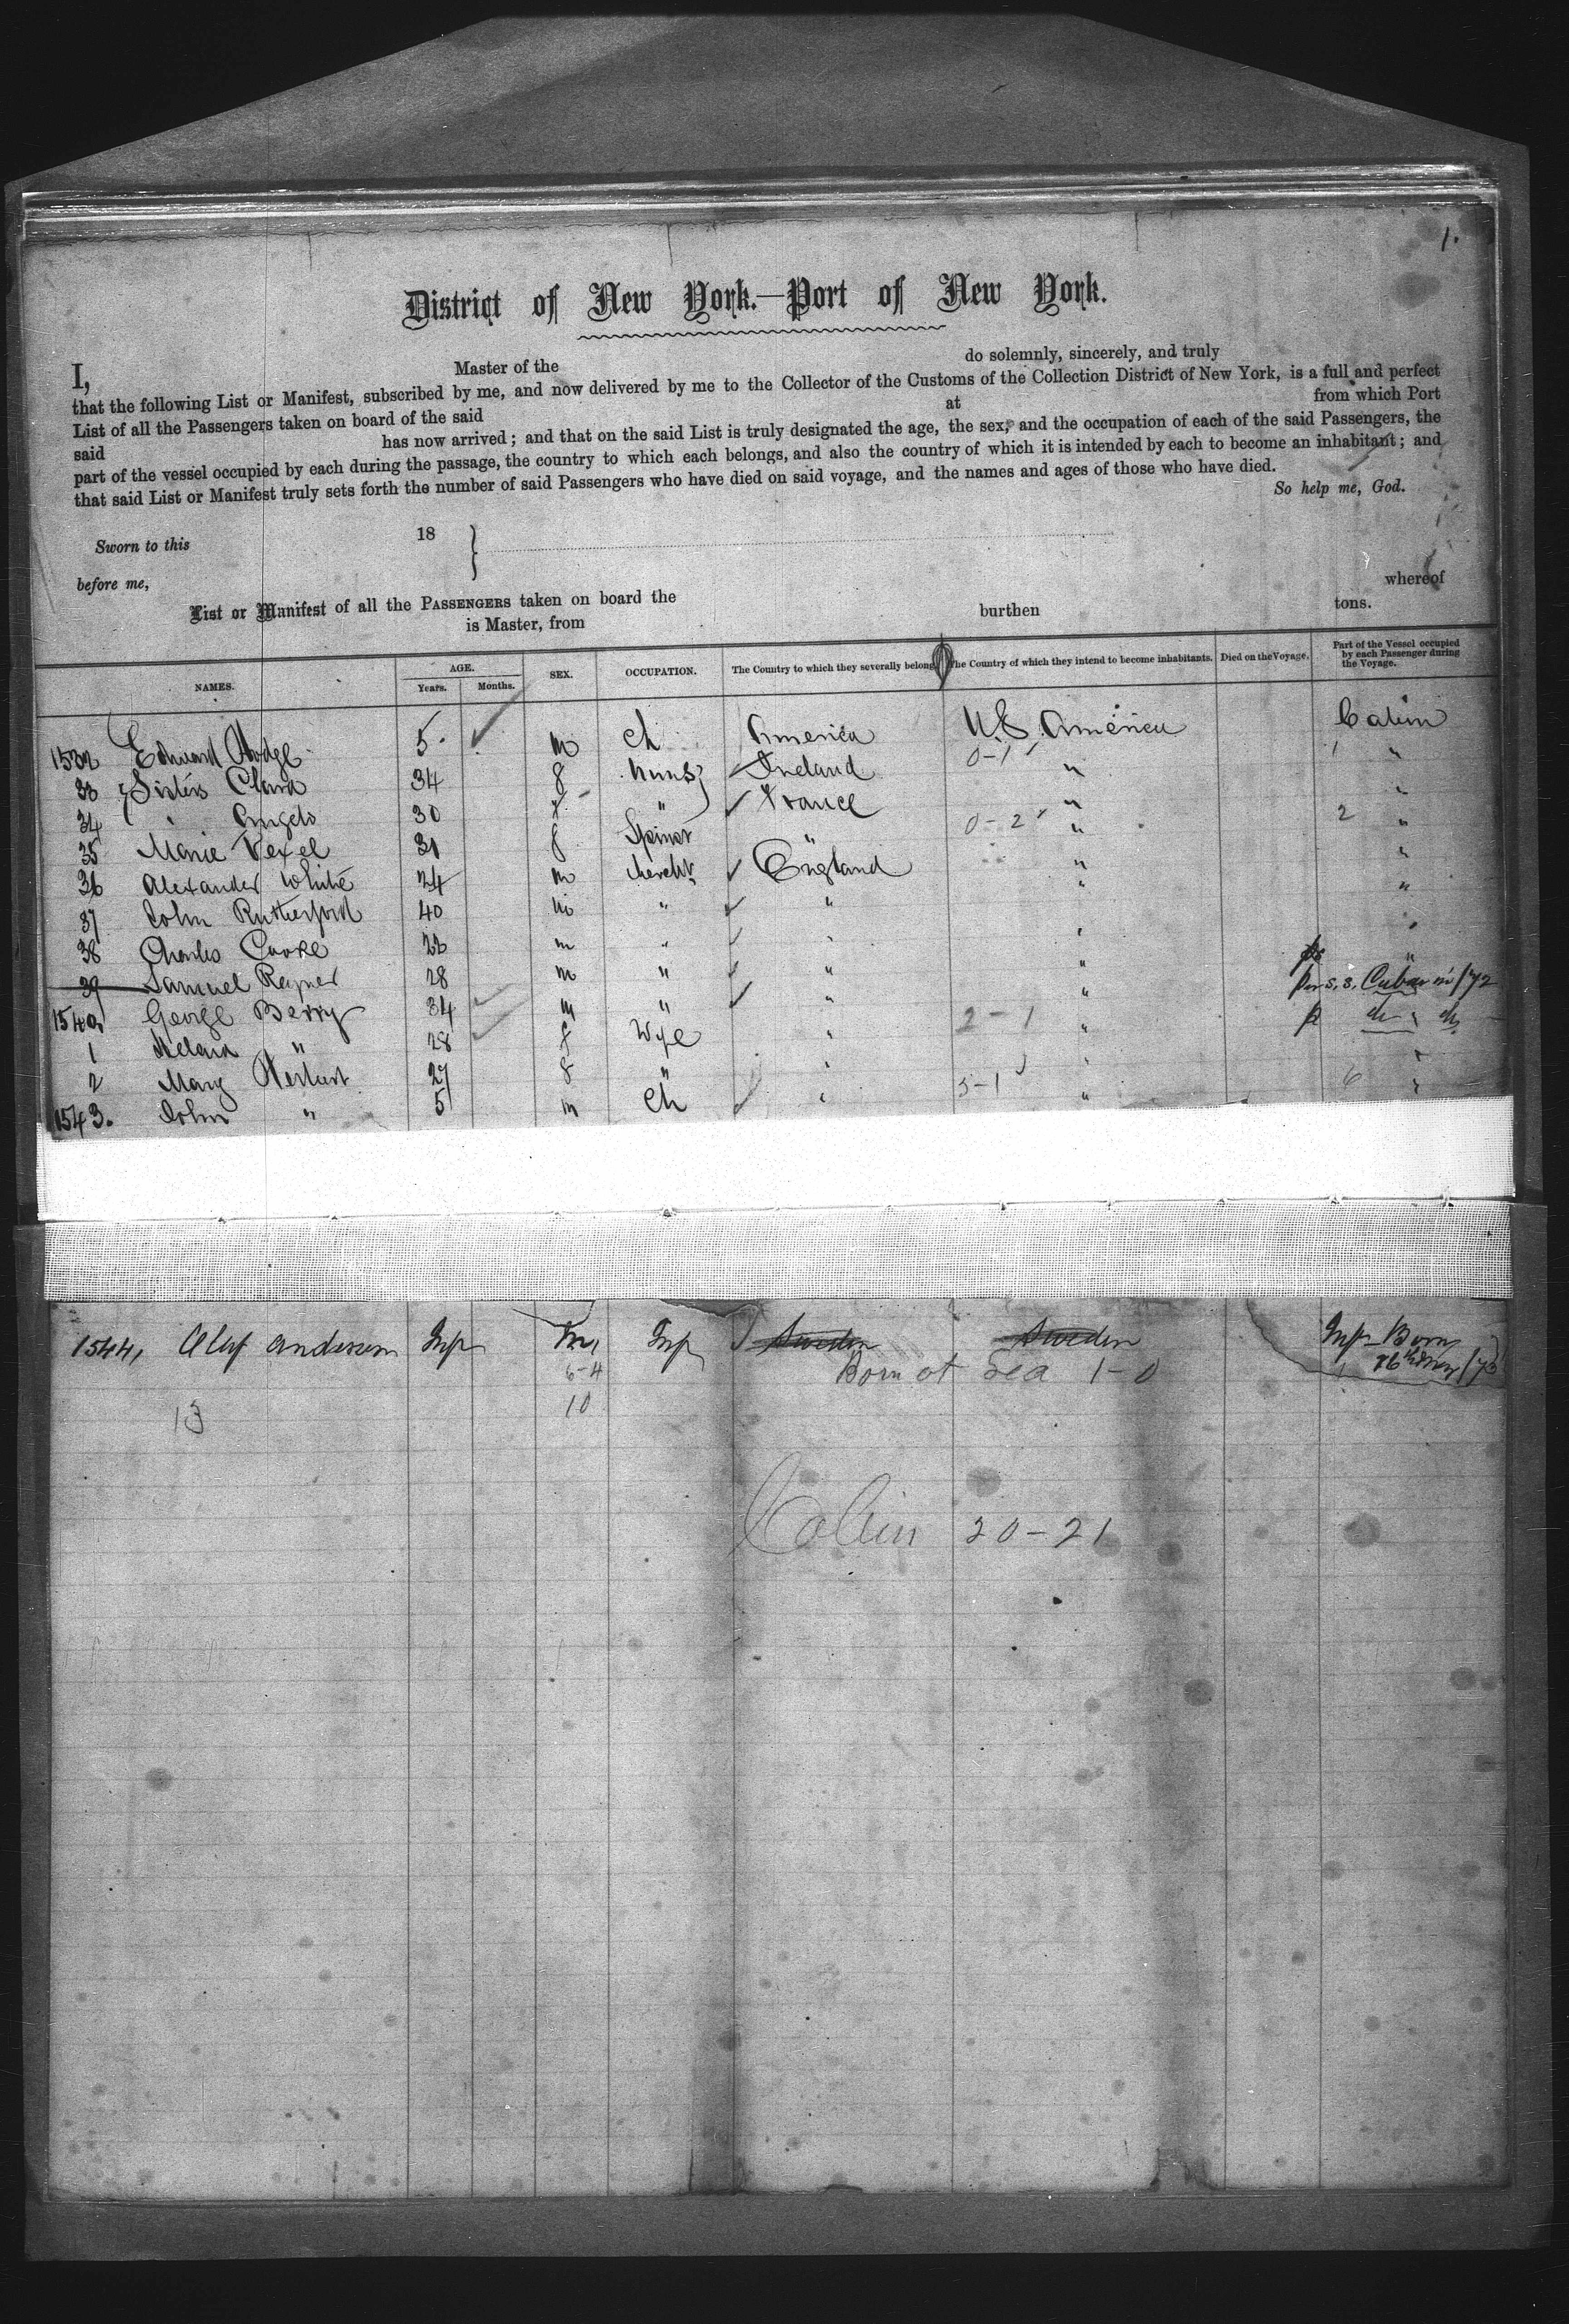 1.
District of New York.—Port of New York.
I, Master of the do solemnly, sincerely, and truly
that the following List or Manifest, subscribed by me, and now delivered by me to the Collector of the Customs of the Collection District of New York, is a full and perfect
List of all the Passengers taken on board of the said at from which Port
said has now arrived; and that on the said List is truly designated the age, the sex, and the occupation of each of the said Passengers, the
part of the vessel occupied by each during the passage, the country to which each belongs, and also the country of which it is intended by each to become an inhabitant; and
that said List or Manifest truly sets forth the number of said Passengers who have died on said voyage, and the names and ages of those who have died.
So help me, God.
Sworn to this 18
before me,
List or Manifest of all the PASSENGERS taken on board the whereof
is Master, from burthen tons.
NAMES. AGE. Years. Months. SEX. OCCUPATION. The Country to which they severally belong. The Country of which they intend to become inhabitants. Died on the Voyage. Part of the Vessel occupied by each Passenger during the Voyage.
1532 Edward Hodge 5 m Ch America U.S. America Cabin
0-1 1
33 Sisters Clara 34 f Nuns Ireland " "
34 " Angels 30 f " France " "
0-2 2
35 Marie Vexel 31 f Spinst " " "
36 Alexander White 24 m Mercht England " "
37 John Rutherford 40 m " " " "
38 Charles Cooke 22 m " " " "
39 Samuel Rayner 28 m " " " "
1540 George Berry 34 m " " " per s.s. Cuba in /72
2-1
1 " 28 f Wife " " do do
2 Mary Herbert 27 f " " " "
5-1 6
1543. John " 5 m Ch " " "
1544, Oluf Anderson Inf m, Inf Sweden Sweden Inf Born
6-4 Born at Sea 1-0 1 16th /73
13 10
Cabin 20-21